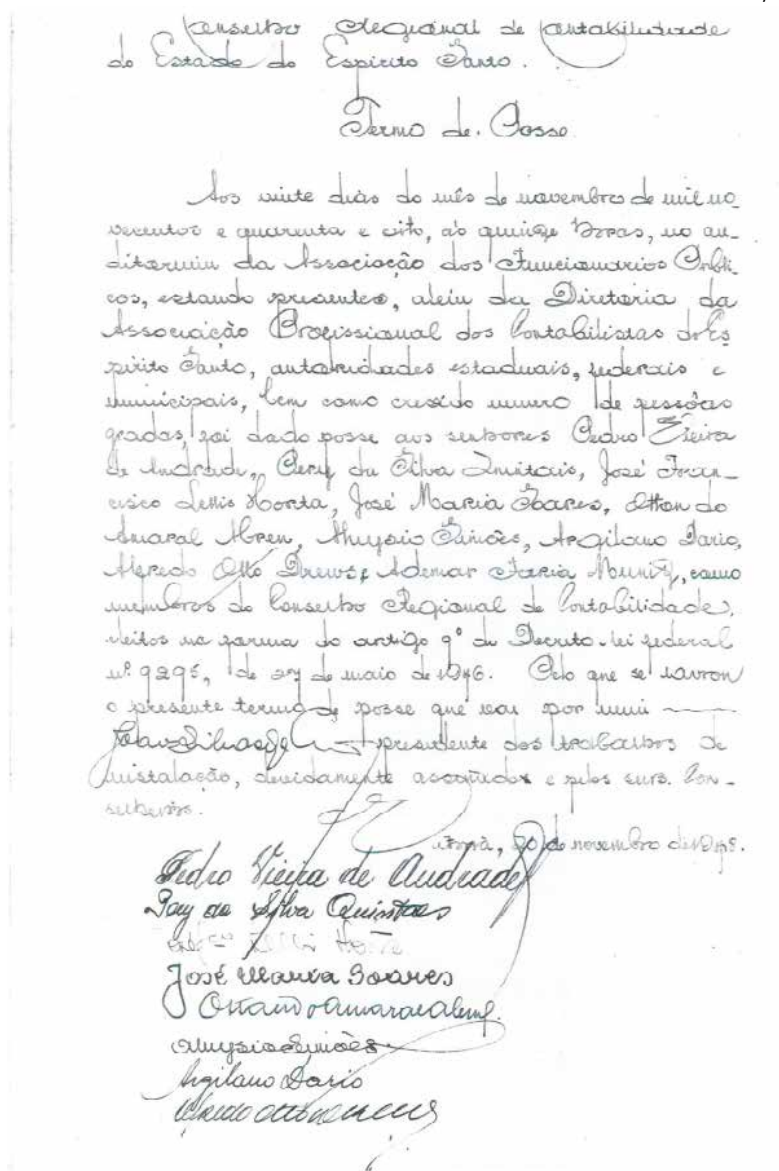 Conselho Regional de Contabilidade
do Estado do Espirito Santo.
Termo de Posse
Aos vinte dias do mês de novembro de mil no-
vecentos e quarenta e oito, às quinze horas, no au-
ditorium da Associação dos Funcionarios Públi-
cos, estando presentes, alem da Diretoria da
Associação Profissional dos Contabilistas do Es
pirito Santo, autoridades estaduais, federais e
municipais, bem como crescido numero de pessôas
gradas, foi dado posse aos senhores Pedro Vieira
de Andrade, da Silva Quintais, José Fran-
cisco Lellis Horta, José Maria Soares, Otton do
Amaral Abreu, Aluysio Simões, Argilano Dario,
Alfredo Otto Drews e Ademar Faria Muniz, como
membros do Conselho Regional de Contabilidade,
eleitos na forma do artigo 9º do Decreto-lei federal
nº 9295, de 27 de maio de 1946. Pelo que se lavrou
o presente termo de posse que vai por mim
presidente dos trabalhos de
instalação, devidamente assinados e pelos snrs. Con-
selheiros.
20 de novembro de 1948.
Pedro Vieira de Andrade
da Silva Quintaes
José Maria Soares
Otton do Amaral Abreu
Aluysio Simões
Argilano Dario
Alfredo Otto Drews